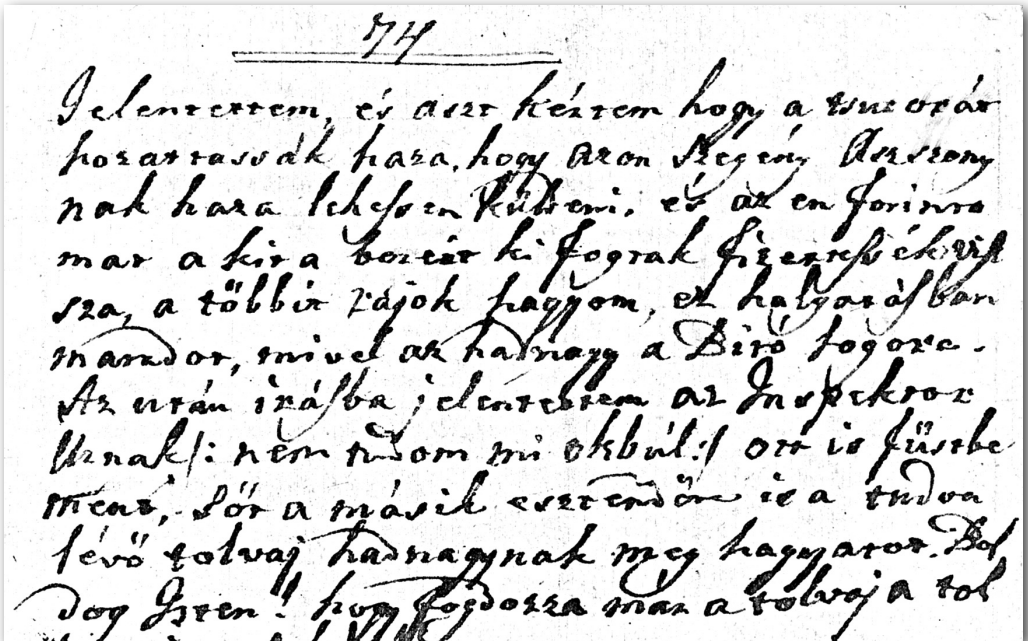 74
Jelentettem, és aszt kértem hogy a tsutorát
hozattassák haza, hogy azon szegény Aszszony
nak haza lehessen küldeni, és az en forinto
mat a kit a boréit ki fogtak fizettessék visz
sza, a többit rájok hagyom, ez halgatásban
maradot, mivel az hadnagy a Biró sogora.
Az után irásba jelentettem az Inspektor
Urnak /: nem tudom mi okbúl :/ ott is füstbe
ment, Sőt a másik esztendőre is a tudva
lévő tolvaj hadnagynak meg hagyatot. Bol
dog Isten! hogy fogdozza mar a tolvaj a tol